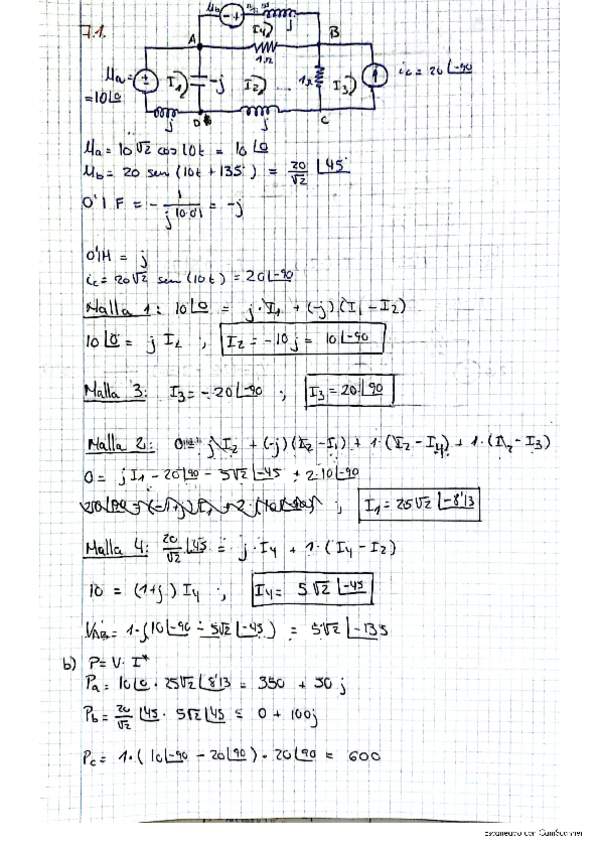 7.1.
μb
j
I4
A
B
1Ω
μa =
I1
-j
I2
1Ω
I3
ic = 20∠-90
= 10∠0
j
D
j
C
μa = 10√2 cos 10t = 10∠0
μb = 20 sen (10t + 135°) = 20/√2 ∠45°
0'1 F = - 1/(j 10·0'1) = -j
0'1H = j
ic = 20√2 sen (10t) = 20∠-90
Malla 1: 10∠0 = j·I1 + (-j)(I1 - I2)
10∠0 = j I2 , I2 = -10j = 10∠-90
Malla 3: I3 = -20∠-90 ; I3 = 20∠90
Malla 2: 0 = j I2 + (-j)(I2 - I1) + 1·(I2 - I4) + 1·(I2 - I3)
0 = j I1 - 20∠90 - 5√2∠-45 + 2·10∠-90
; I1 = 25√2∠-8'13
Malla 4: 20/√2 ∠45 = j·I4 + 1·(I4 - I2)
10 = (1+j) I4 ; I4 = 5√2∠-45
VAB = 1·(10∠-90 - 5√2∠-45) = 5√2∠-135
b) P = V· I*
Pa = 10∠0 · 25√2∠8'13 = 350 + 50j
Pb = 20/√2 ∠45 · 5√2∠45 = 0 + 100j
Pc = 1·(10∠-90 - 20∠90) · 20∠90 = 600
Escaneado con CamScanner